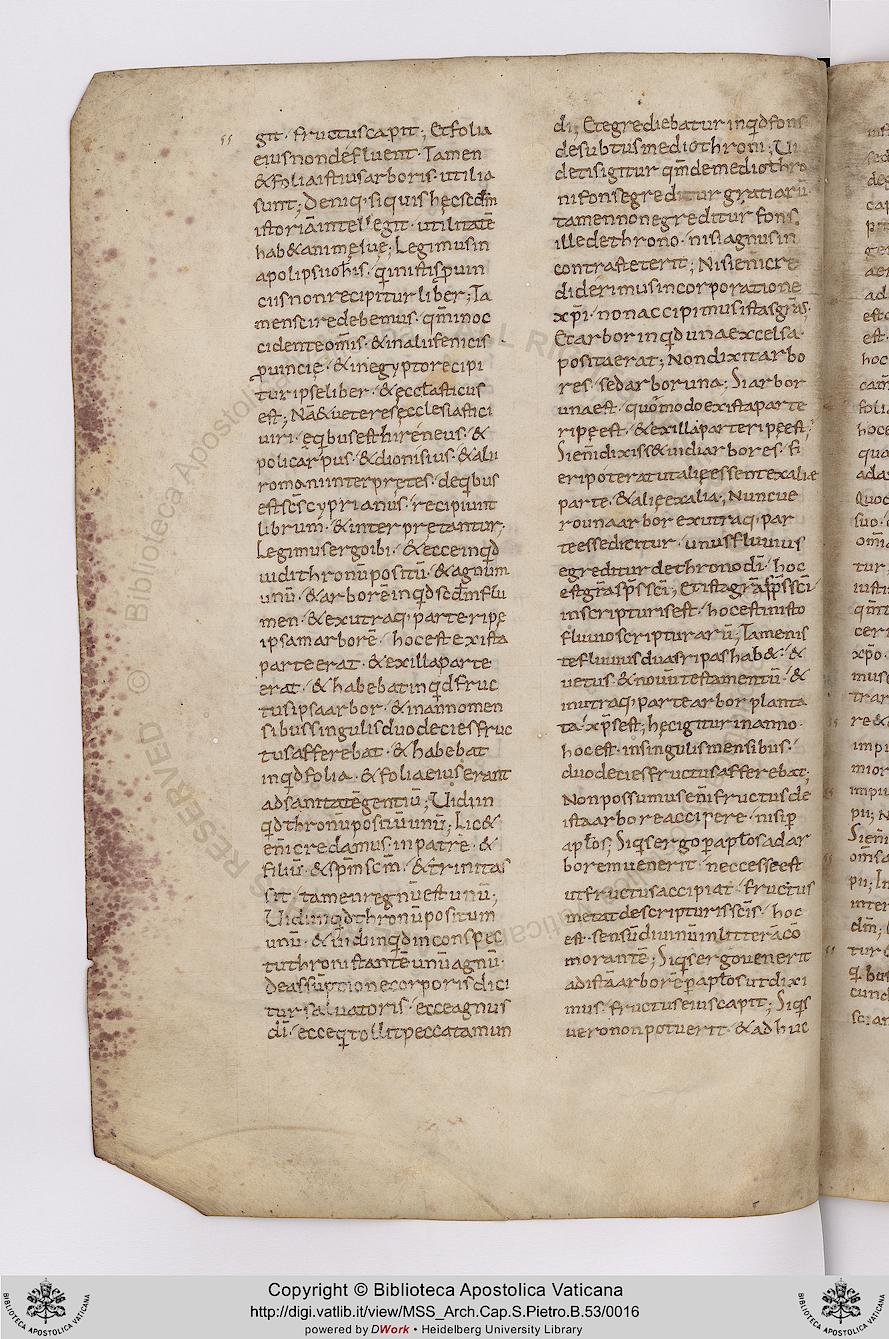 git · fructus capit ; Et folia
eius non defluent · Tamen
& folia istius arboris · utilia
sunt ; Deniq· si quis hęc scdm̄
istoriā intellegit · utilitatē
hab& animę suę ; Legimus in
apolipsi iohīs · in istis puin
ciis non recipitur liber ; Ta
men scire debemus · qm̄ in oc
cidente om̄is · & in alıis fenicis
puincie · & in egypto recipi
tur ipse liber · & ecclasticus
est ; Nā & ueteres ecclesiastici
uiri · e q̄bus est hireneus · &
policarpus · & dionisius · & alii
romani interpretes · de q̄bus
est sc̄s cyprianus · recipiunt
librum · & interpretantur ;
Legimus ergo ibi · & ecce inqd
uidi thronū positū · & agnum
unū · & arborē inqd secdm̄ flu
men · & ex utraq· parte ripe
ipsam arborē · hoc est ex ista
parte erat · & ex illa parte
erat · & habebat inqd fruc
tus ipsa arbor · & in anno men
sibus singulis duodecies fruc
tus afferebat · & habebat
inqd folia · & folia eius erant
ad sanitatē gentiū ; Uidi in
qd thronū positū unū ; Lic&
eni credamus in patre · &
filiū · & sp̄m sc̄m · & trinitas
sit · tamen regnū est unū ;
Uidi inqd thronū positum
unū · & uidi inqd in conspec
tu throni stantē unū agnū ·
De assūptione corporis dici
tur saluatoris · ecce agnus
dī · ecce q̄ tollit peccata mun
di ; Et egrediebatur inqd fons
de subtus medio throni ; Ui
detis igitur qm̄ de medio thro
ni fons egreditur gratiarū
tamen non egreditur fons
ille de throno · nisi agnus in
contra steterit ; Nisi enīcre
diderimus incorporatione
xp̄i · non accipimus istas grās ·
Et arbor inqd una excelsa ·
posita erat ; Non dixit arbo
res · sed arbor una ; Si arbor
una est · quomodo ex ista parte
ripę est · & ex illa parte ripę est ;
Si enī dixiss& uidi arbores · fi
eri poterat ut alię essent ex alia
parte · & alię ex alia ; Nunc ue
ro una arbor ex utraq· par
te esse dicitur · unus fluuius
egreditur de throno dī · hoc
est grā sp̄s scī ; Et ista grā sp̄s scī
in scripturis est · hoc est in isto
fluuio scripturarū ; Tamen is
te fluuius duas ripas hab& · &
uetus · & nouū testamentū · &
in utraq· parte arbor planta
ta · xp̄s est ; hęc igitur in anno ·
hoc est · in singulis mensibus ·
duodecies fructus afferebat ;
Non possumus enī fructus de
ista arbore accipere · nisi p
apłos ; Si q̄s ergo p apłos ad ar
borem uenerit · neccesse est
ut fructus accipiat · fructus
metat de scripturis scīs · hoc
est · sensū diuinū in litterā co
morantē ; Si q̄s ergo uenerit
ad istā arborē p apłos ut dixi
mus · fructus eius capit ; Si q̄s
uero non potuerit · & adhuc
Copyright © Biblioteca Apostolica Vaticana
http://digi.vatlib.it/view/MSS_Arch.Cap.S.Pietro.B.53/0016
powered by DWork • Heidelberg University Library